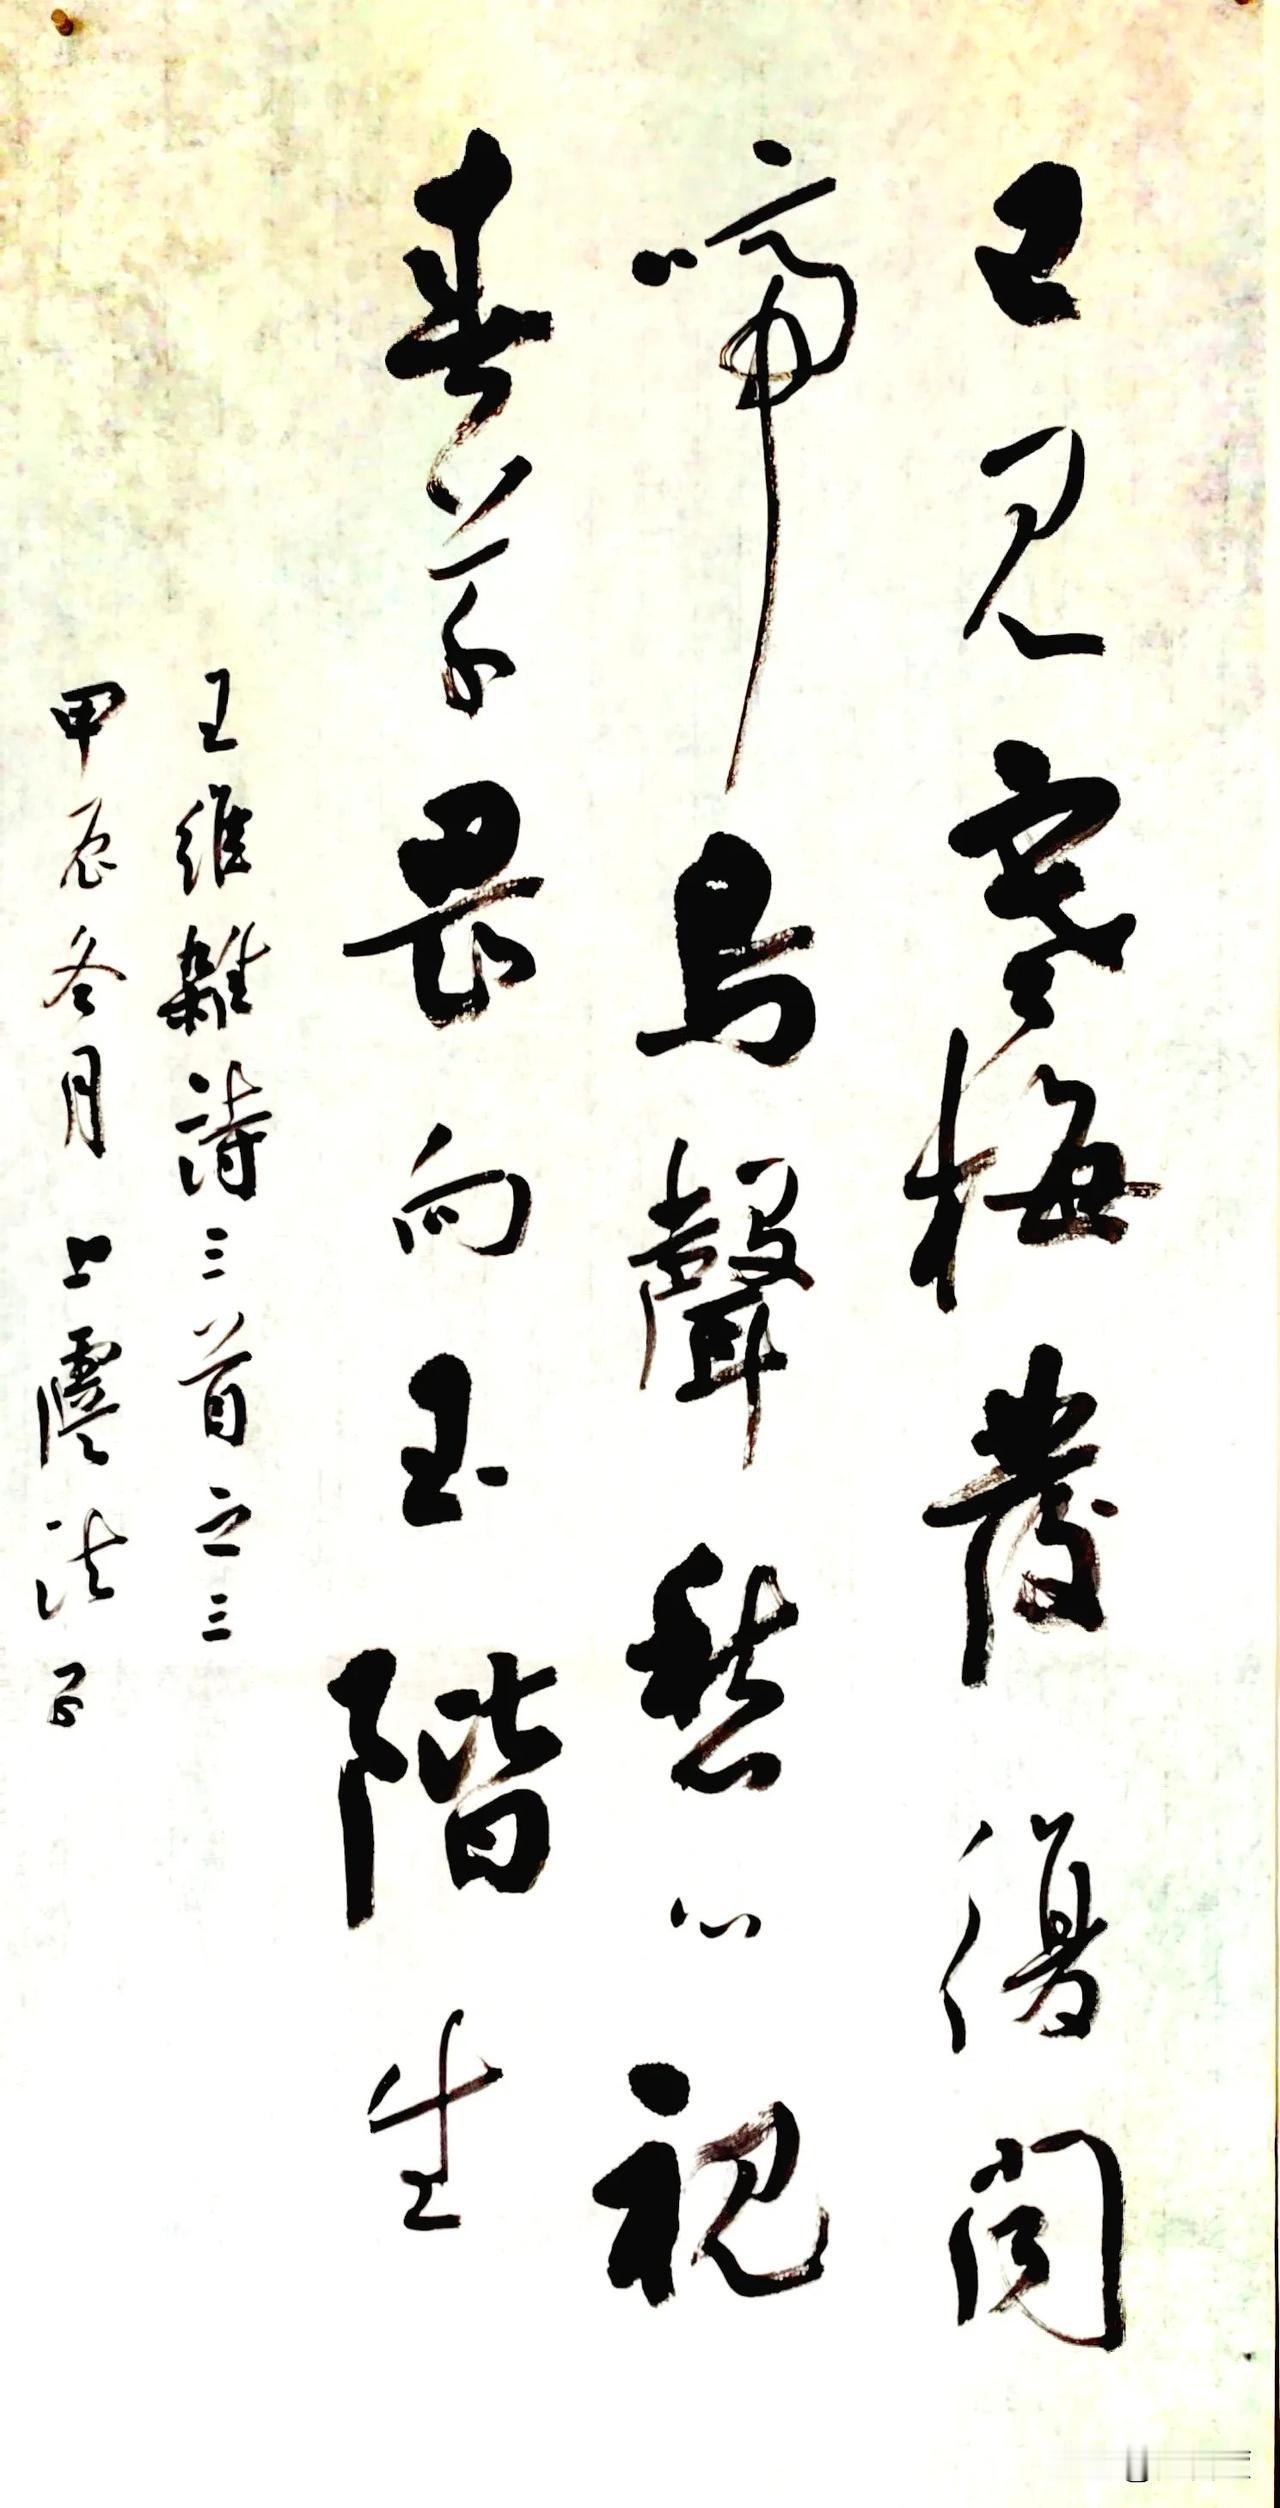 已見寒梅發復聞
啼鳥聲愁心視
春草畏向玉階生
王維雜詩三首之三
甲辰冬月上虞